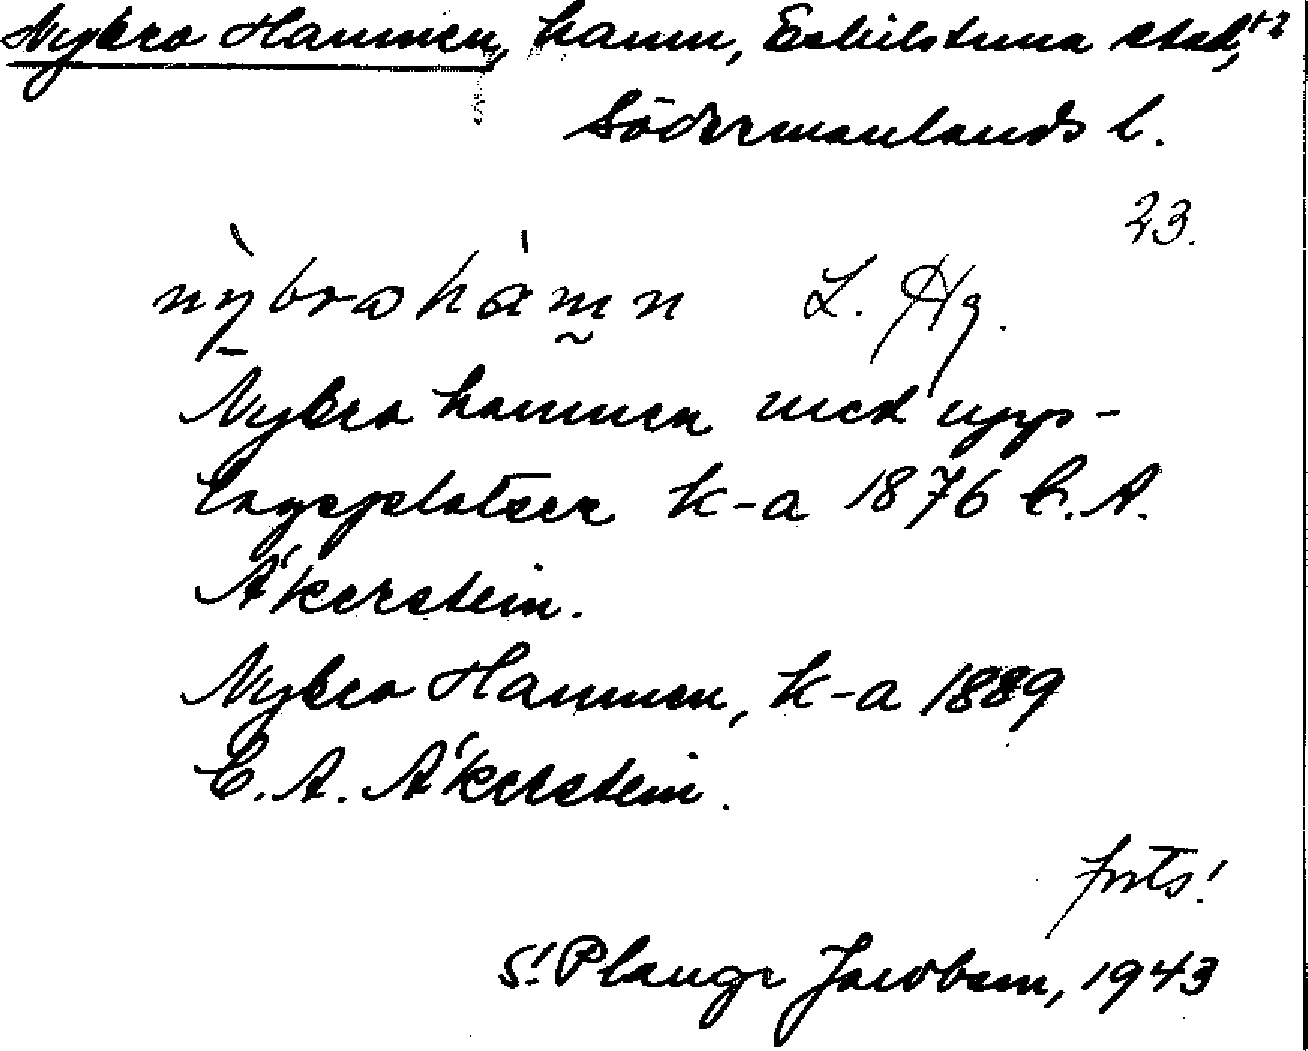 Nybro Hamnen, hamn, Eskilstuna stad,
Södermanlands l.
23.
nỳbrohàmn L. Hg.
Nybro hamnen med upp-
lagsplatser k-a 1876 C. A.
Åkerstein.
Nybro Hamnen, k-a 1889
C. A. Åkerstein.
forts!
S! Plange Jacobson, 1943